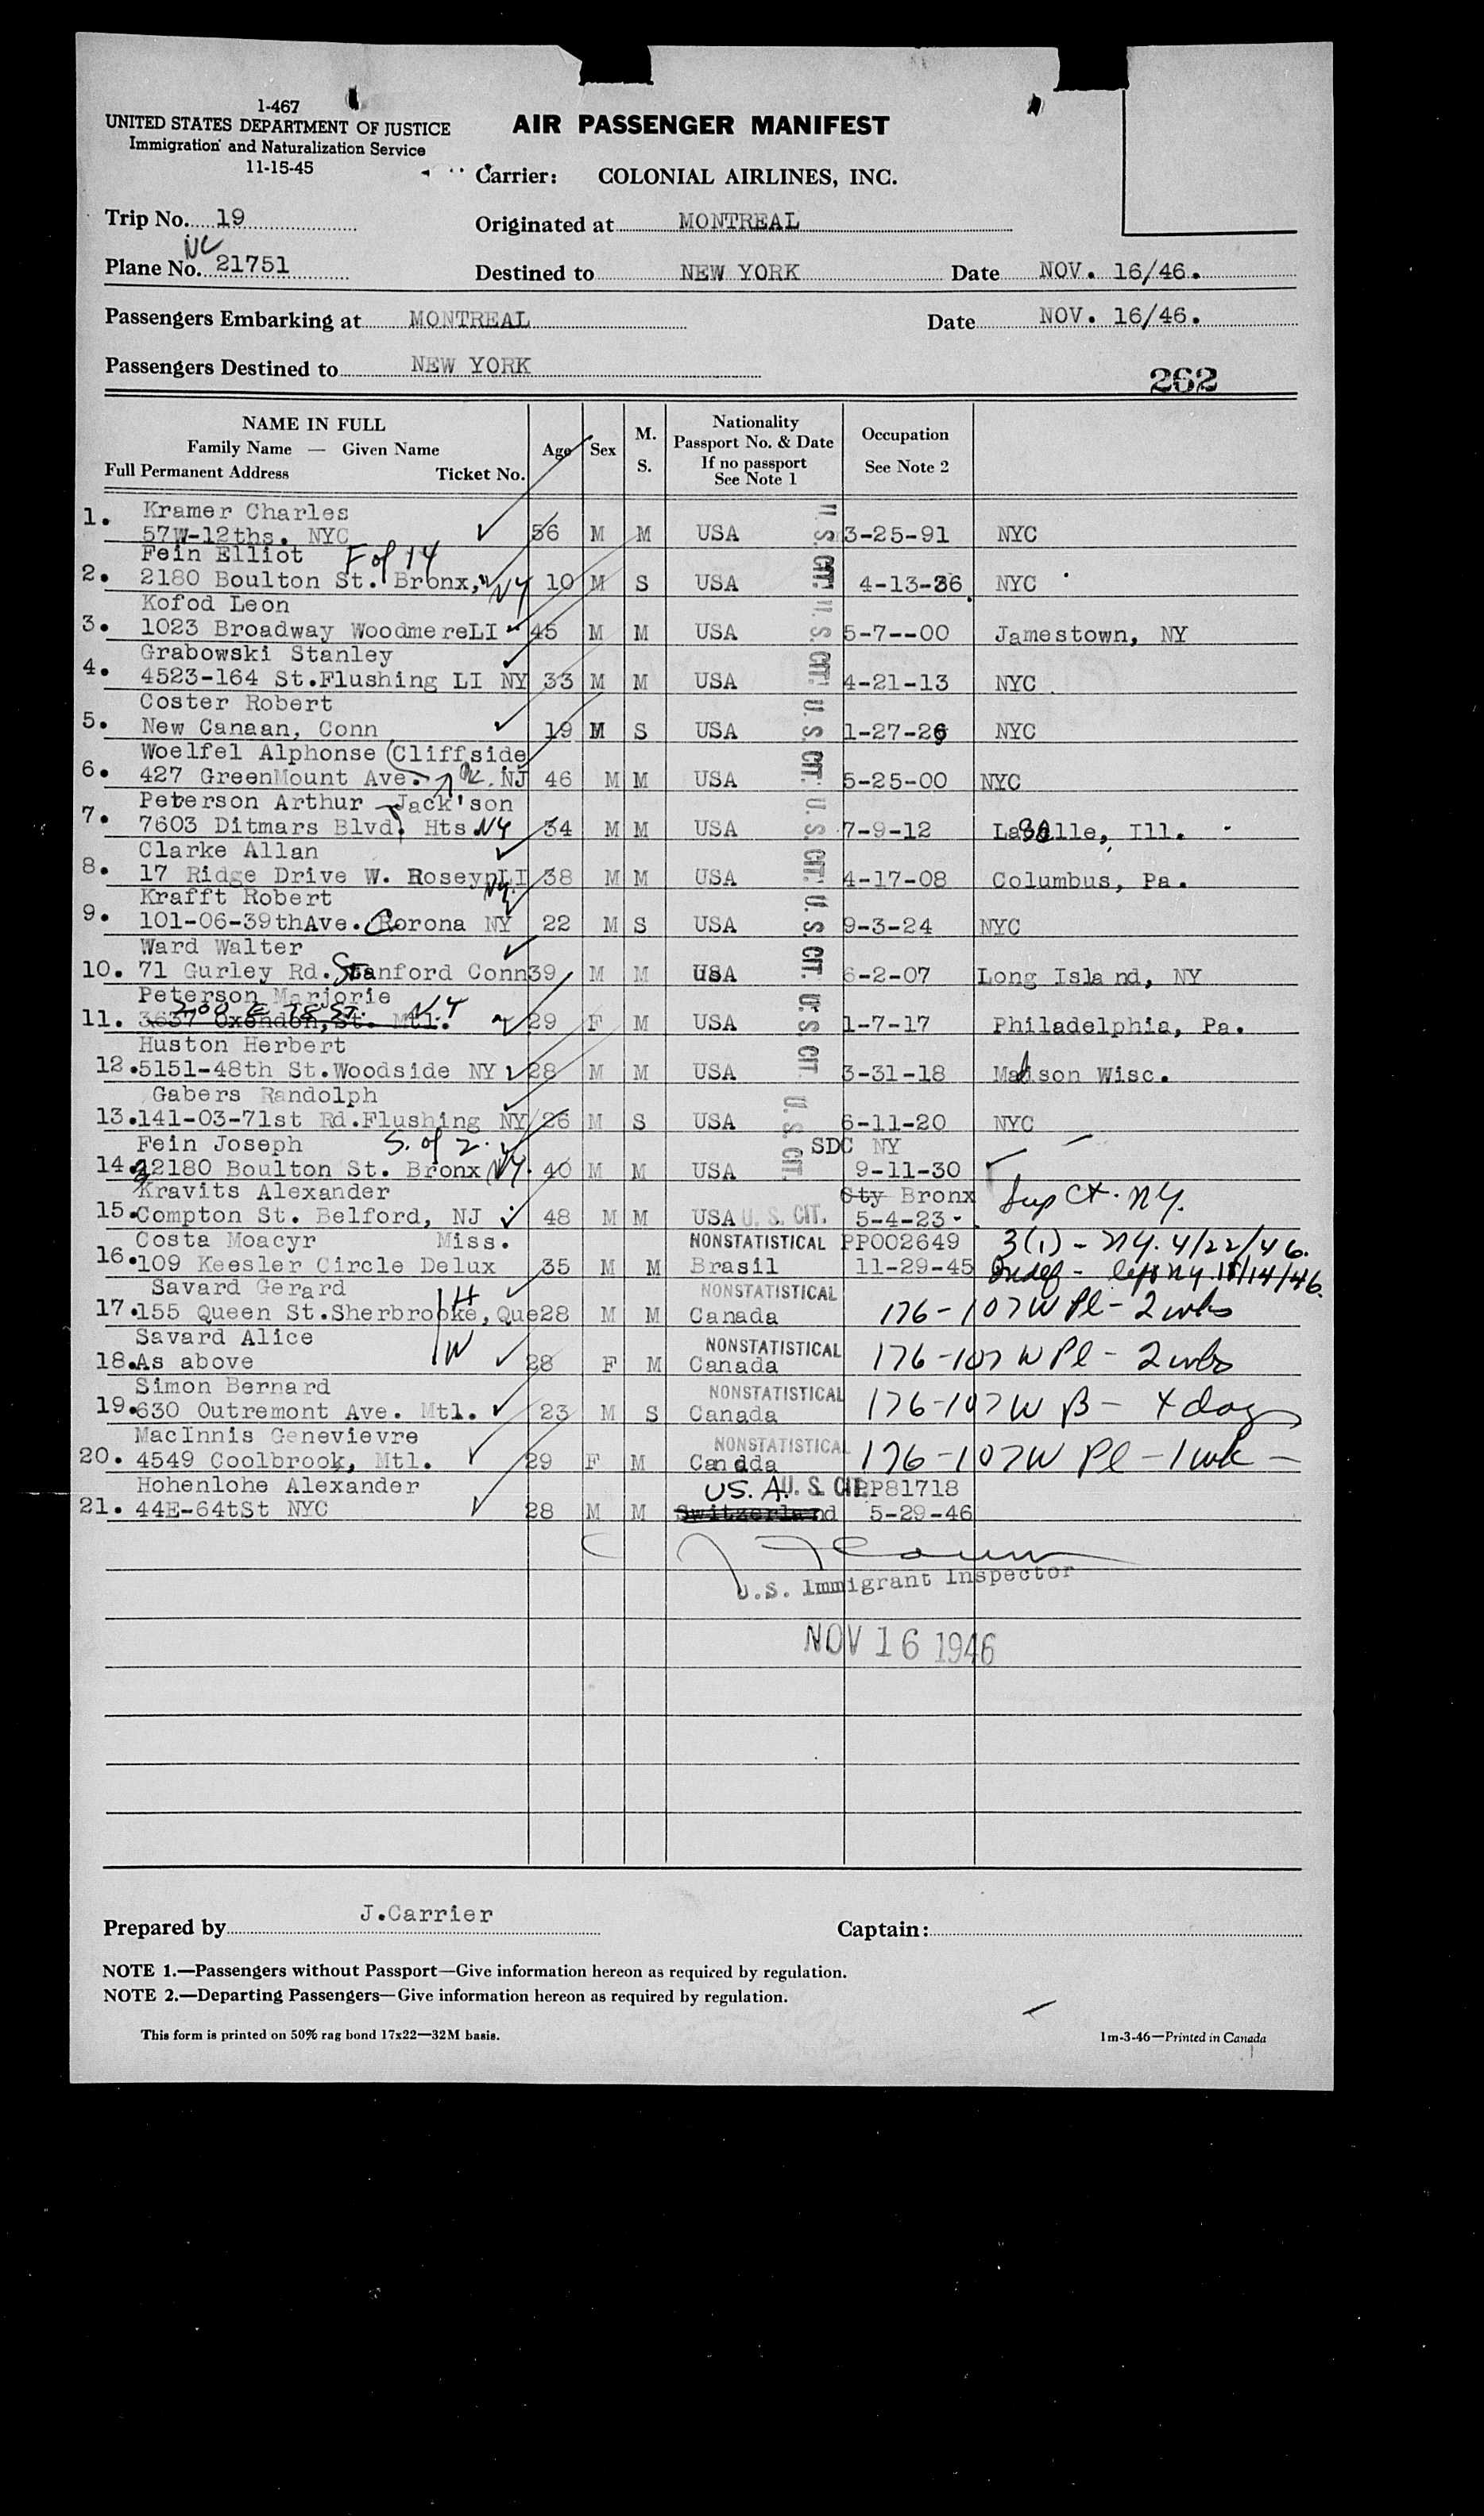 1-467
UNITED STATES DEPARTMENT OF JUSTICE
Immigration and Naturalization Service
11-15-45
AIR PASSENGER MANIFEST
Carrier: COLONIAL AIRLINES, INC.
Trip No. 19
Originated at MONTREAL
NC
Plane No. 21751
Destined to NEW YORK Date NOV. 16/46.
Passengers Embarking at MONTREAL Date NOV. 16/46.
Passengers Destined to NEW YORK
262
NAME IN FULL
Family Name — Given Name
Full Permanent Address Ticket No.
Age Sex M. S.
Nationality
Passport No. & Date
If no passport
See Note 1
Occupation
See Note 2
Kramer Charles
1. 57W-12ths. NYC 56 M M USA U. S. CIT. 3-25-91 NYC
Fein Elliot F of 14
2. 2180 Boulton St. Bronx, NY 10 M S USA U. S. CIT. 4-13-36. NYC
Kofod Leon
3. 1023 Broadway WoodmereLI 45 M M USA U. S. CIT. 5-7--00 Jamestown, NY
Grabowski Stanley
4. 4523-164 St.Flushing LI NY 33 M M USA U. S. CIT. 4-21-13 NYC
Coster Robert
5. New Canaan, Conn 19 M S USA U. S. CIT. 1-27-26 NYC
Woelfel Alphonse (Cliffside
6. 427 GreenMount Ave. Pk. NJ 46 M M USA U. S. CIT. 5-25-00 NYC
Peterson Arthur Jack'son
7. 7603 Ditmars Blvd. Hts NY 34 M M USA U. S. CIT. 7-9-12 LaSalle, Ill.
Clarke Allan
8. 17 Ridge Drive W. RoseynLI NY. 38 M M USA U. S. CIT. 4-17-08 Columbus, Pa.
Krafft Robert
9. 101-06-39thAve. Corona NY 22 M S USA U. S. CIT. 9-3-24 NYC
Ward Walter
10. 71 Gurley Rd. Stanford Conn 39 M M USA U. S. CIT. 6-2-07 Long Island, NY
Peterson Marjorie
200 E 78 ST. N.Y
11. 3637 Oxendon, St. Mtl. 29 F M USA U. S. CIT. 1-7-17 Philadelphia, Pa.
Huston Herbert
12. 5151-48th St.Woodside NY 28 M M USA U. S. CIT. 3-31-18 Madison Wisc.
Gabers Randolph
13. 141-03-71st Rd.Flushing NY 26 M S USA U. S. CIT. 6-11-20 NYC
Fein Joseph S. of 2. SDC NY
14. 2180 Boulton St. Bronx NY. 40 M M USA 9-11-30
Kravits Alexander Cty Bronx
15. Compton St. Belford, NJ 48 M M USA U. S. CIT. 5-4-23 Sup Ct. NY.
Costa Moacyr Miss. NONSTATISTICAL PP002649 3(1) - NY. 4/22/46.
16. 109 Keesler Circle Delux 35 M M Brasil 11-29-45 Indef - left NY.
Savard Gerard H NONSTATISTICAL
17. 155 Queen St.Sherbrooke, Que 28 M M Canada 176-107W Pl - 2 wks
Savard Alice W NONSTATISTICAL
18. As above 28 F M Canada 176-107W Pl - 2 wks
Simon Bernard NONSTATISTICAL
19. 630 Outremont Ave. Mtl. 23 M S Canada 176-107W B - 4 days
MacInnis Genevievre NONSTATISTICAL
20. 4549 Coolbrook, Mtl. 29 F M Canada 176-107W Pl - 1 wk -
Hohenlohe Alexander US. A. U. S. CIT. PP81718
21. 44E-64tSt NYC 28 M M Switzerland 5-29-46
U.S. Immigrant Inspector
NOV 16 1946
Prepared by J.Carrier Captain:
NOTE 1.—Passengers without Passport—Give information hereon as required by regulation.
NOTE 2.—Departing Passengers—Give information hereon as required by regulation.
This form is printed on 50% rag bond 17x22—32M basis.
1m-3-46—Printed in Canada